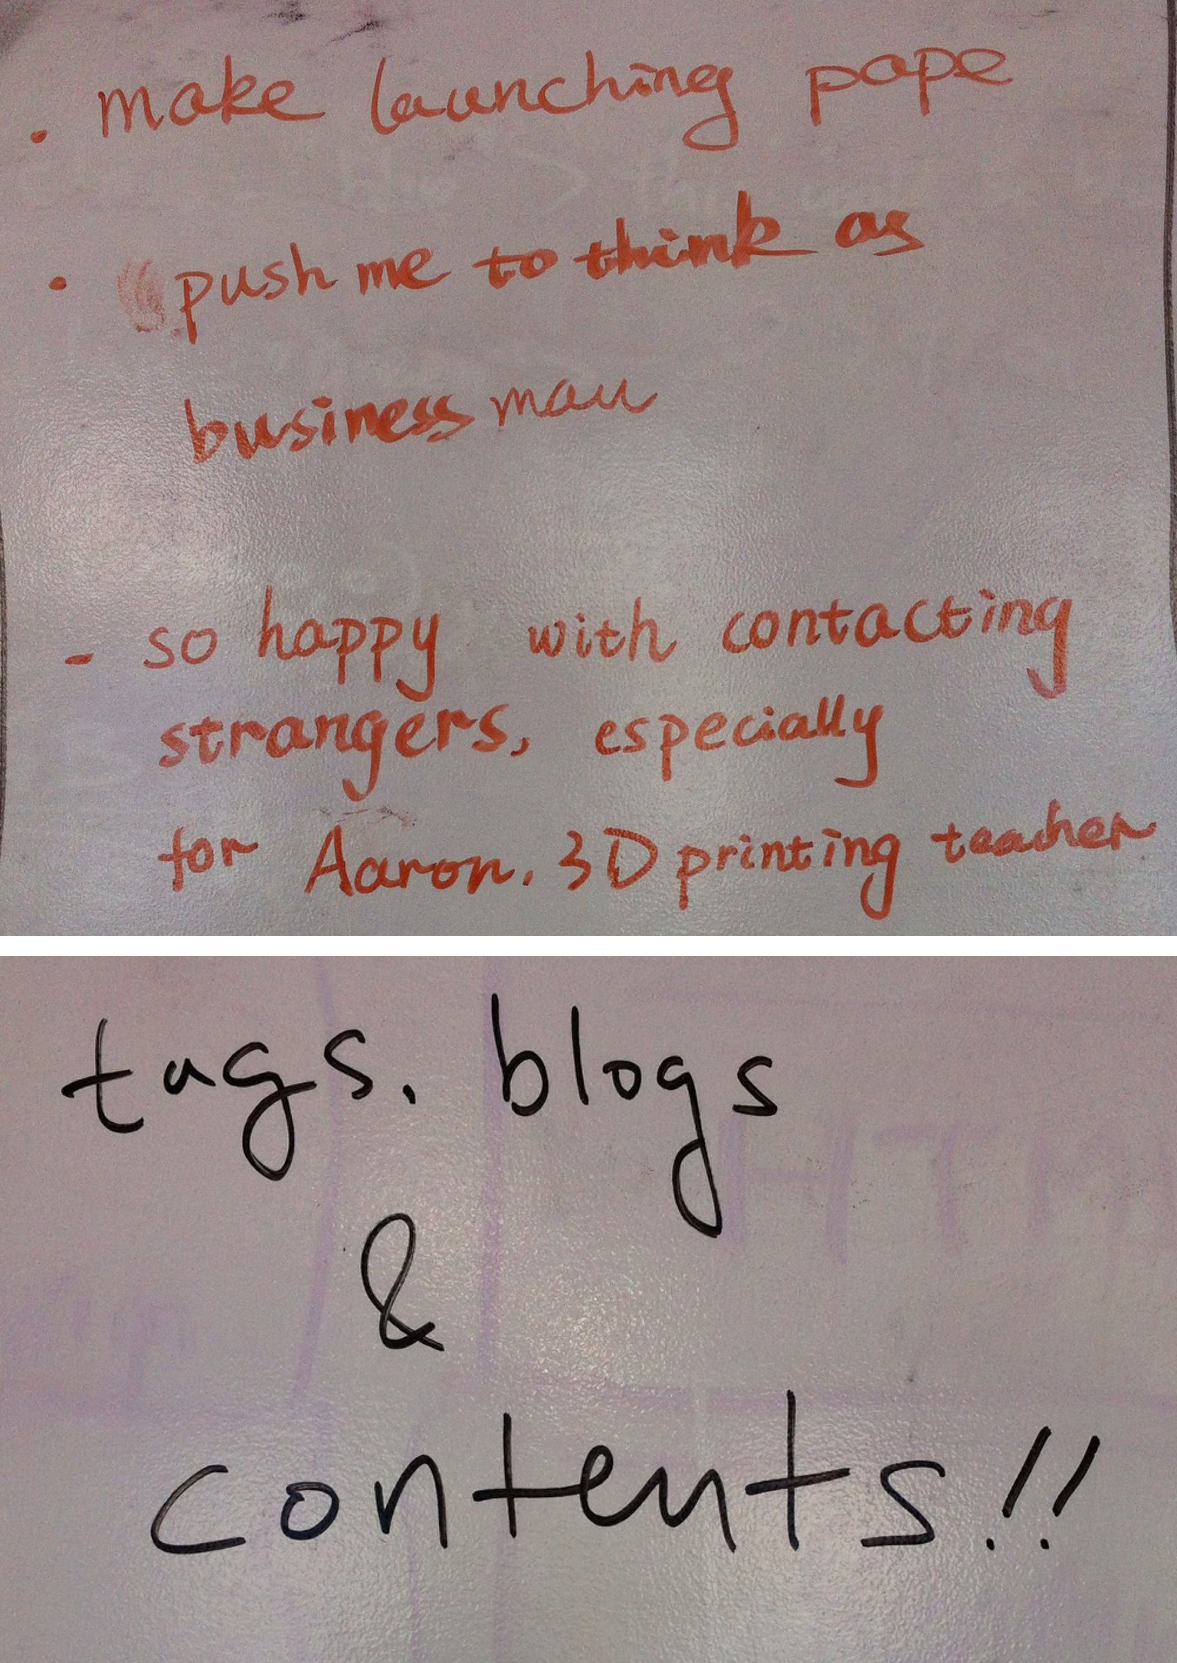 · make launching pape
· push me to think as
business man
- so happy with contacting
strangers, especially
for Aaron. 3D printing teacher
tags. blogs
&
contents!!